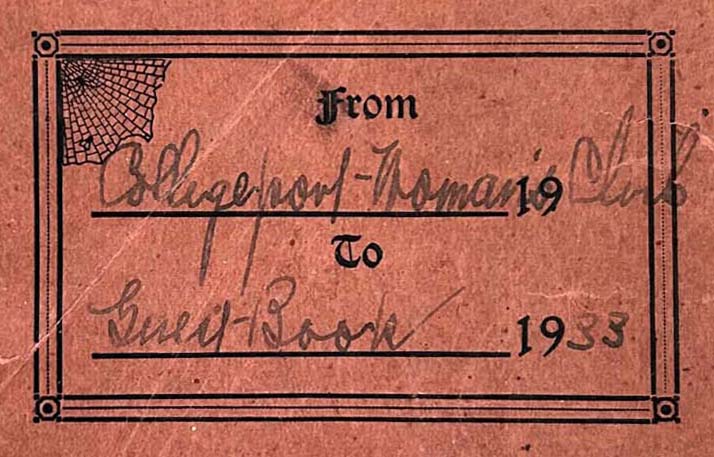 From
Collegeport-Woman's 19 Club
To
Guest-Book 1933